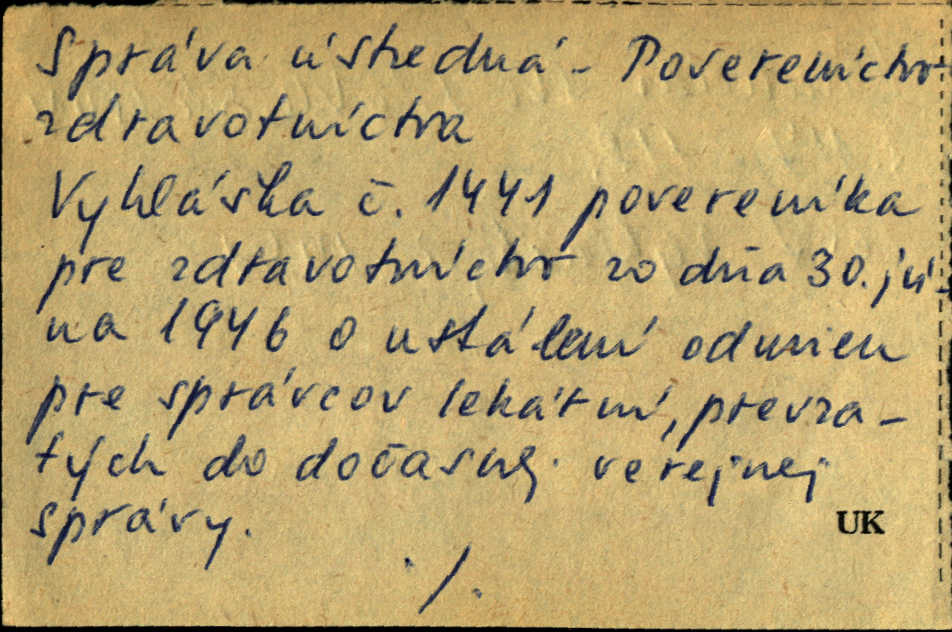 Správa ústredná - Povereníctvo
zdravotníctva
Vyhláška č. 1441 povereníka
pre zdravotníctvo zo dňa 30. jú-
na 1946 o ustálení odmien
pre správcov lekární, prevza-
tých do dočasnej verejnej
správy.
UK
./.